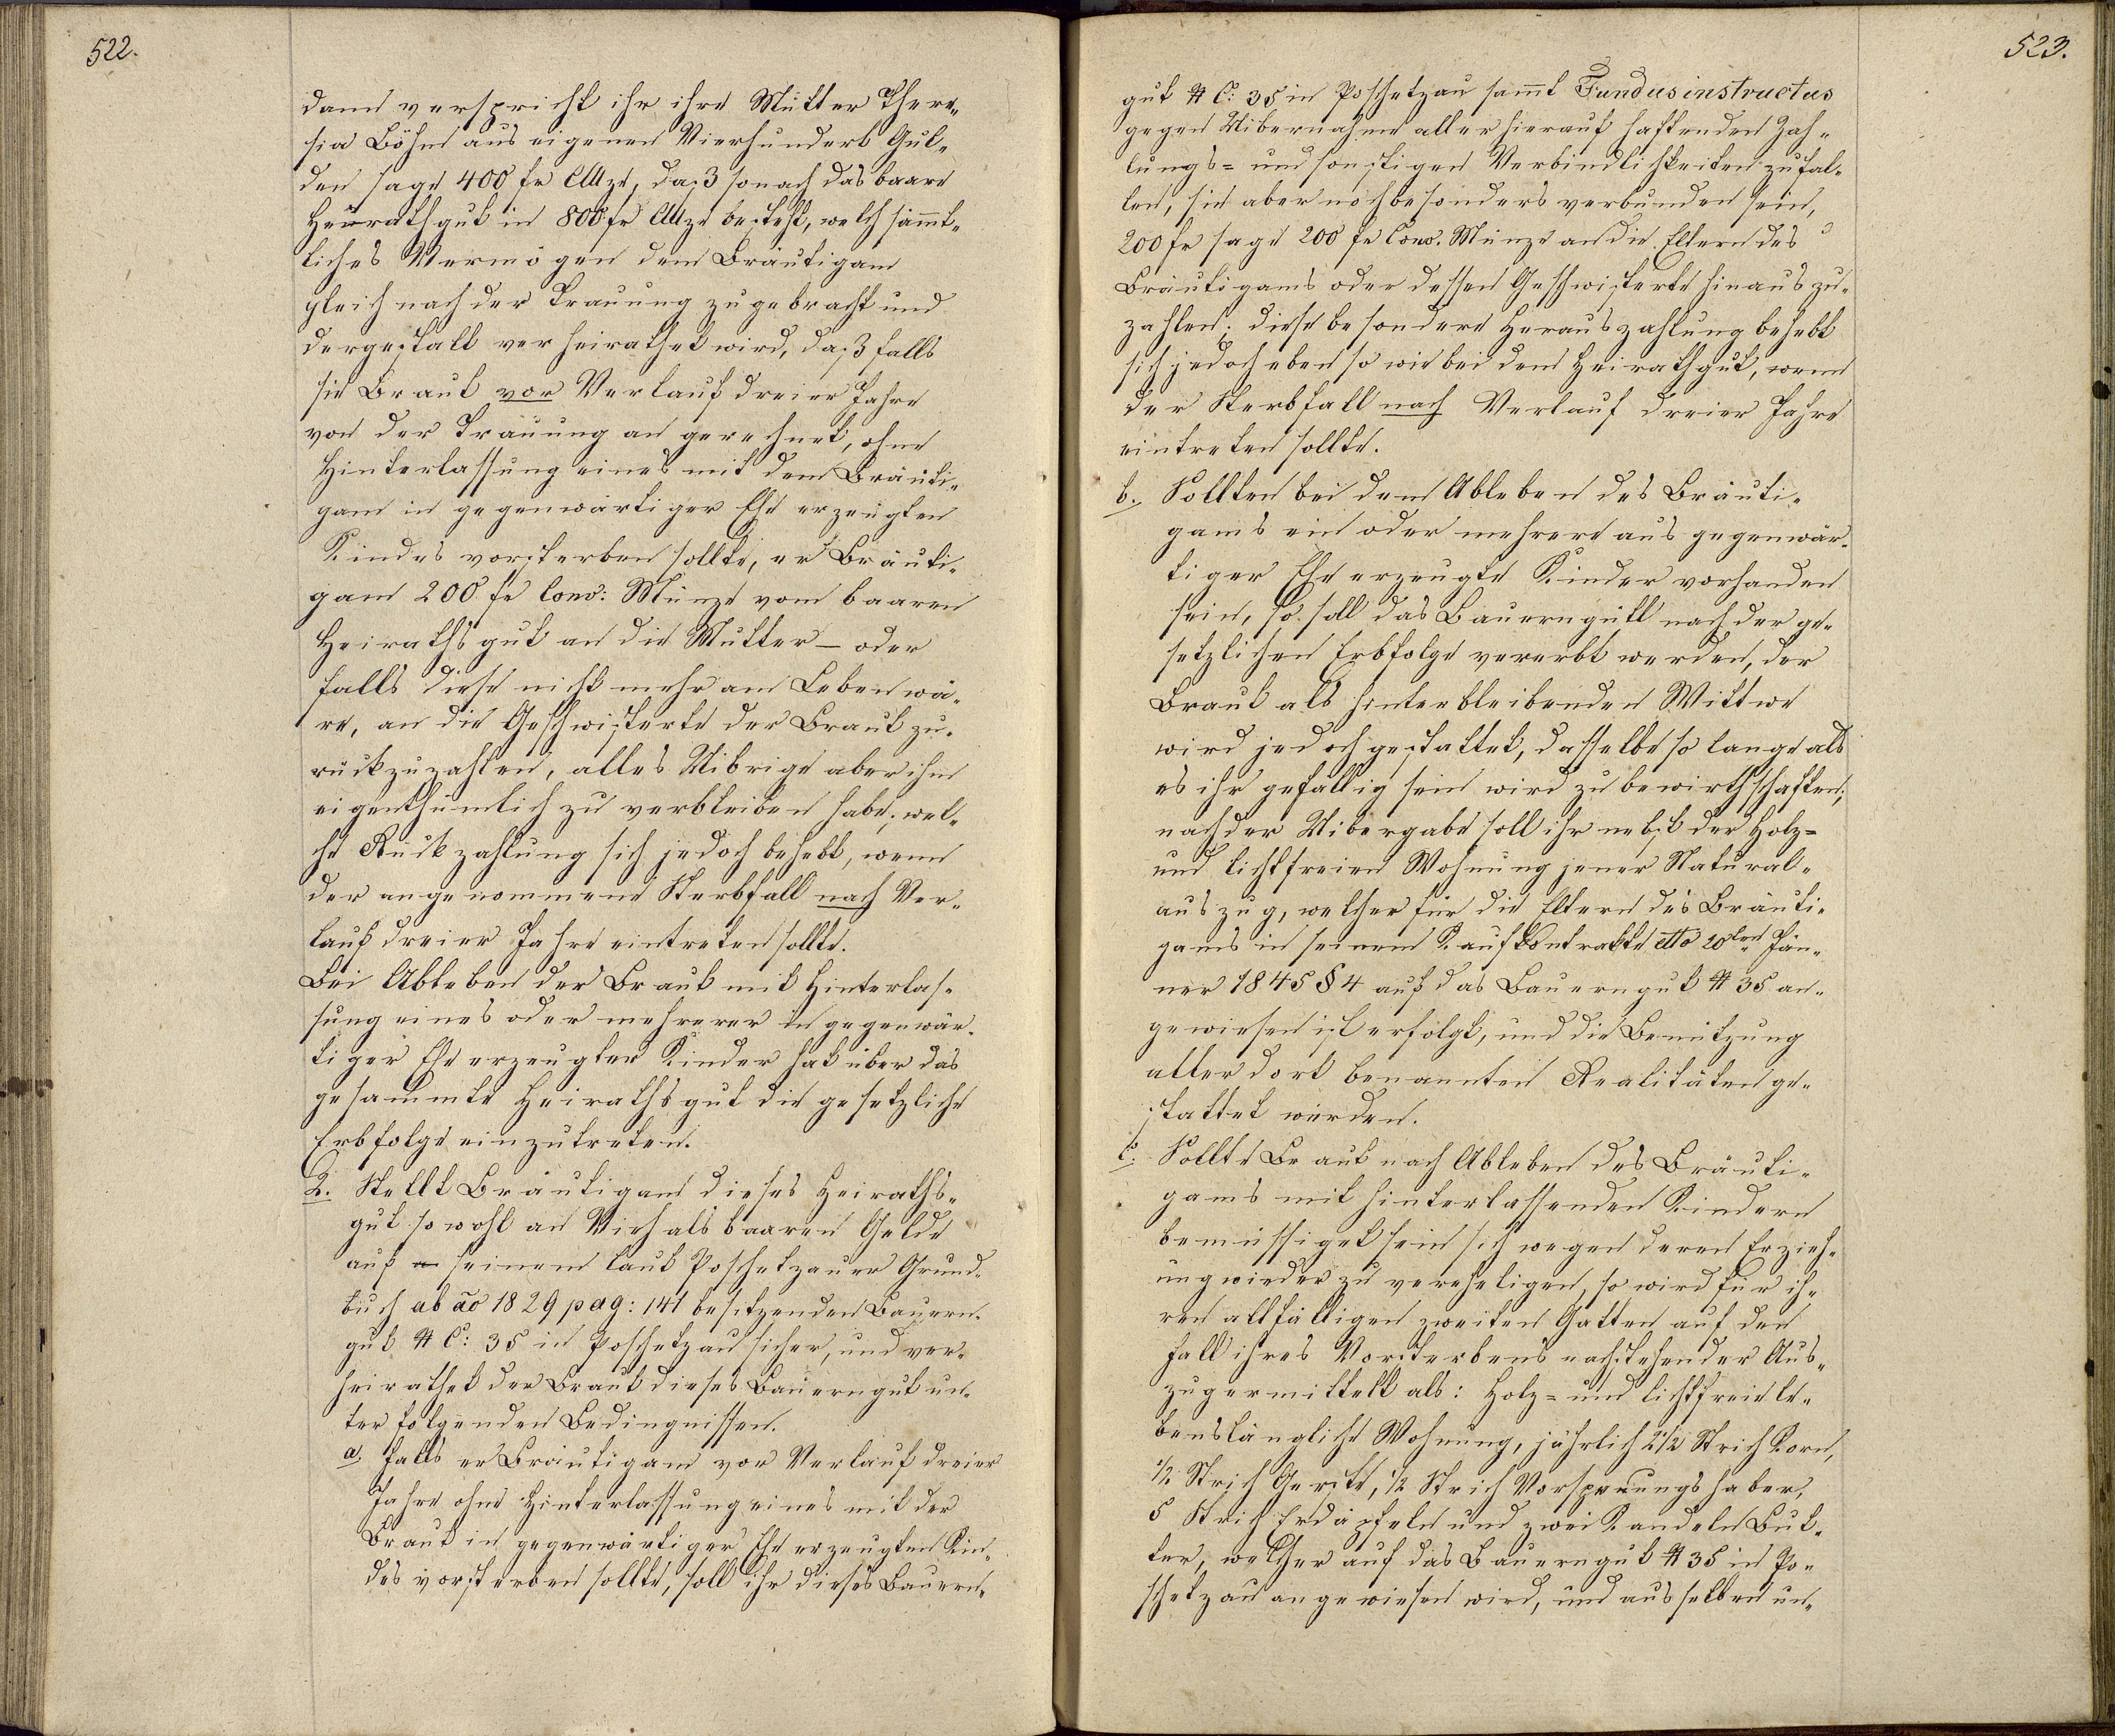 522.
dann verspricht ihr ihre Mutter There„
sia Böhm aus eigenen Vierhundert Gul„
den sage 400 fr CMze, daß sonach das baare
Heurathgut in 800 fr CMze besteht, welch sämt„
liches Vermögen dem Bräutigam
gleich nach der Trauung zugebracht und
dergestalt verheirathet wird, daß falls
sie Braut vor Verlauf dreier Jahre
von der Trauung an gerechnet, ohne
Hinterlassung eines mit dem Bräuti„
gam in gegenwärtiger Ehe erzeugten
Kindes vorsterben sollte, er Bräuti„
gam 200 fr Conv: Münze vom baaren
Heirathsgut an die Mutter – oder
falls diese nicht mehr am Leben wä„
re, an die Geschwisterte der Braut zu„
rückzuzahlen, alles Uibrige aber ihm
eigenthümlich zu verbleiben habe; wel„
che Rückzahlung sich jedoch behebt, wenn
der angenommene Sterbfall nach Ver„
lauf dreier Jahre eintreten sollte.
Bei Ableben der Braut mit Hinterlas„
sung eines oder mehrerer in gegenwär„
tiger Ehe erzeugter Kinder hat über das
gesammte Heirathsgut die gesetzliche
Erbfolge einzutreten.
2. Stellt Bräutigam dieses Heiraths„
gut sowohl an Vieh als baaren Gelde
auf seinem laut Poschetzauer Grund„
buch ab ao 1829 pag: 141 besitzenden Bauern„
gut # C: 35 in Poschetzau sicher, und ver„
heirathet der Braut dieses Bauerngut un„
ter folgenden Bedingnissen.
a. falls er Bräutigam vor Verlauf dreier
Jahre ohne Hinterlassung eines mit der
Braut in gegenwärtiger Ehe erzeugten Kin„
des vorsterben sollte, soll ihr dieses Bauern„
523.
gut # C: 35 in Poschetzau samt Fundus instructus
gegen Uibernahme aller hierauf haftenden Zah„
lungs= und sonstigen Verbindlichkeiten zufal„
len, sie aber noch besonders verbunden sein,
200 fr sage 200 fr Conv. Münze an die Eltern des
Bräutigams oder dessen Geschwisterte hinauszu„
zahlen; diese besondere Herauszahlung behebt
sich jedoch eben so wie bei dem Heirathgut, wenn
der Sterbfall nach Verlauf dreier Jahre
eintreten sollte.
b. Sollten bei dem Ableben des Bräuti„
gams ein oder mehrere aus gegenwär„
tiger Ehe erzeugte Kinder vorhanden
sein, so soll das Bauerngutt nach der ge„
setzlichen Erbfolge vererbt werden, der
Braut als hinterbleibenden Wittwe
wird jedoch gestattet, dasselbe so lange als
es ihr gefällig sein wird zu bewirthschaften;
nach der Uibergabe soll ihr nebst der Holz=
und lichtfreien Wohnung jener Natural„
auszug, welcher für die Eltern des Bräuti„
gams in seinem Kaufkontrakte dtto 20ten Jän„
ner 1845 § 4 auf das Bauerngut # 35 an„
gewiesen ist erfolgt, und die Benützung
aller dort benannten Realitäten ge„
stattet werden.
c. Sollte Braut nach Ableben des Bräuti„
gams mit hinterlassenden Kindern
bemüssiget sein sich wegen deren Erzieh„
ung wieder zu vereheligen, so wird für ih„
ren allfälligen zweiten Gatten auf den
Fall ihres Vorsterbens nachstehender Aus„
zug ermittelt als: Holz= und lichtfreie le„
benslängliche Wohnung, jährlich 2 1/2 Strich Korn,
1/2 Strich Gerste, 1/2 Strich Vorsprungshaber,
5 Strich Erdäpfeln und zwei Kandeln But„
ter, welcher auf das Bauerngut # 35 in Po„
schetzau angewiesen wird, und aus selben un„